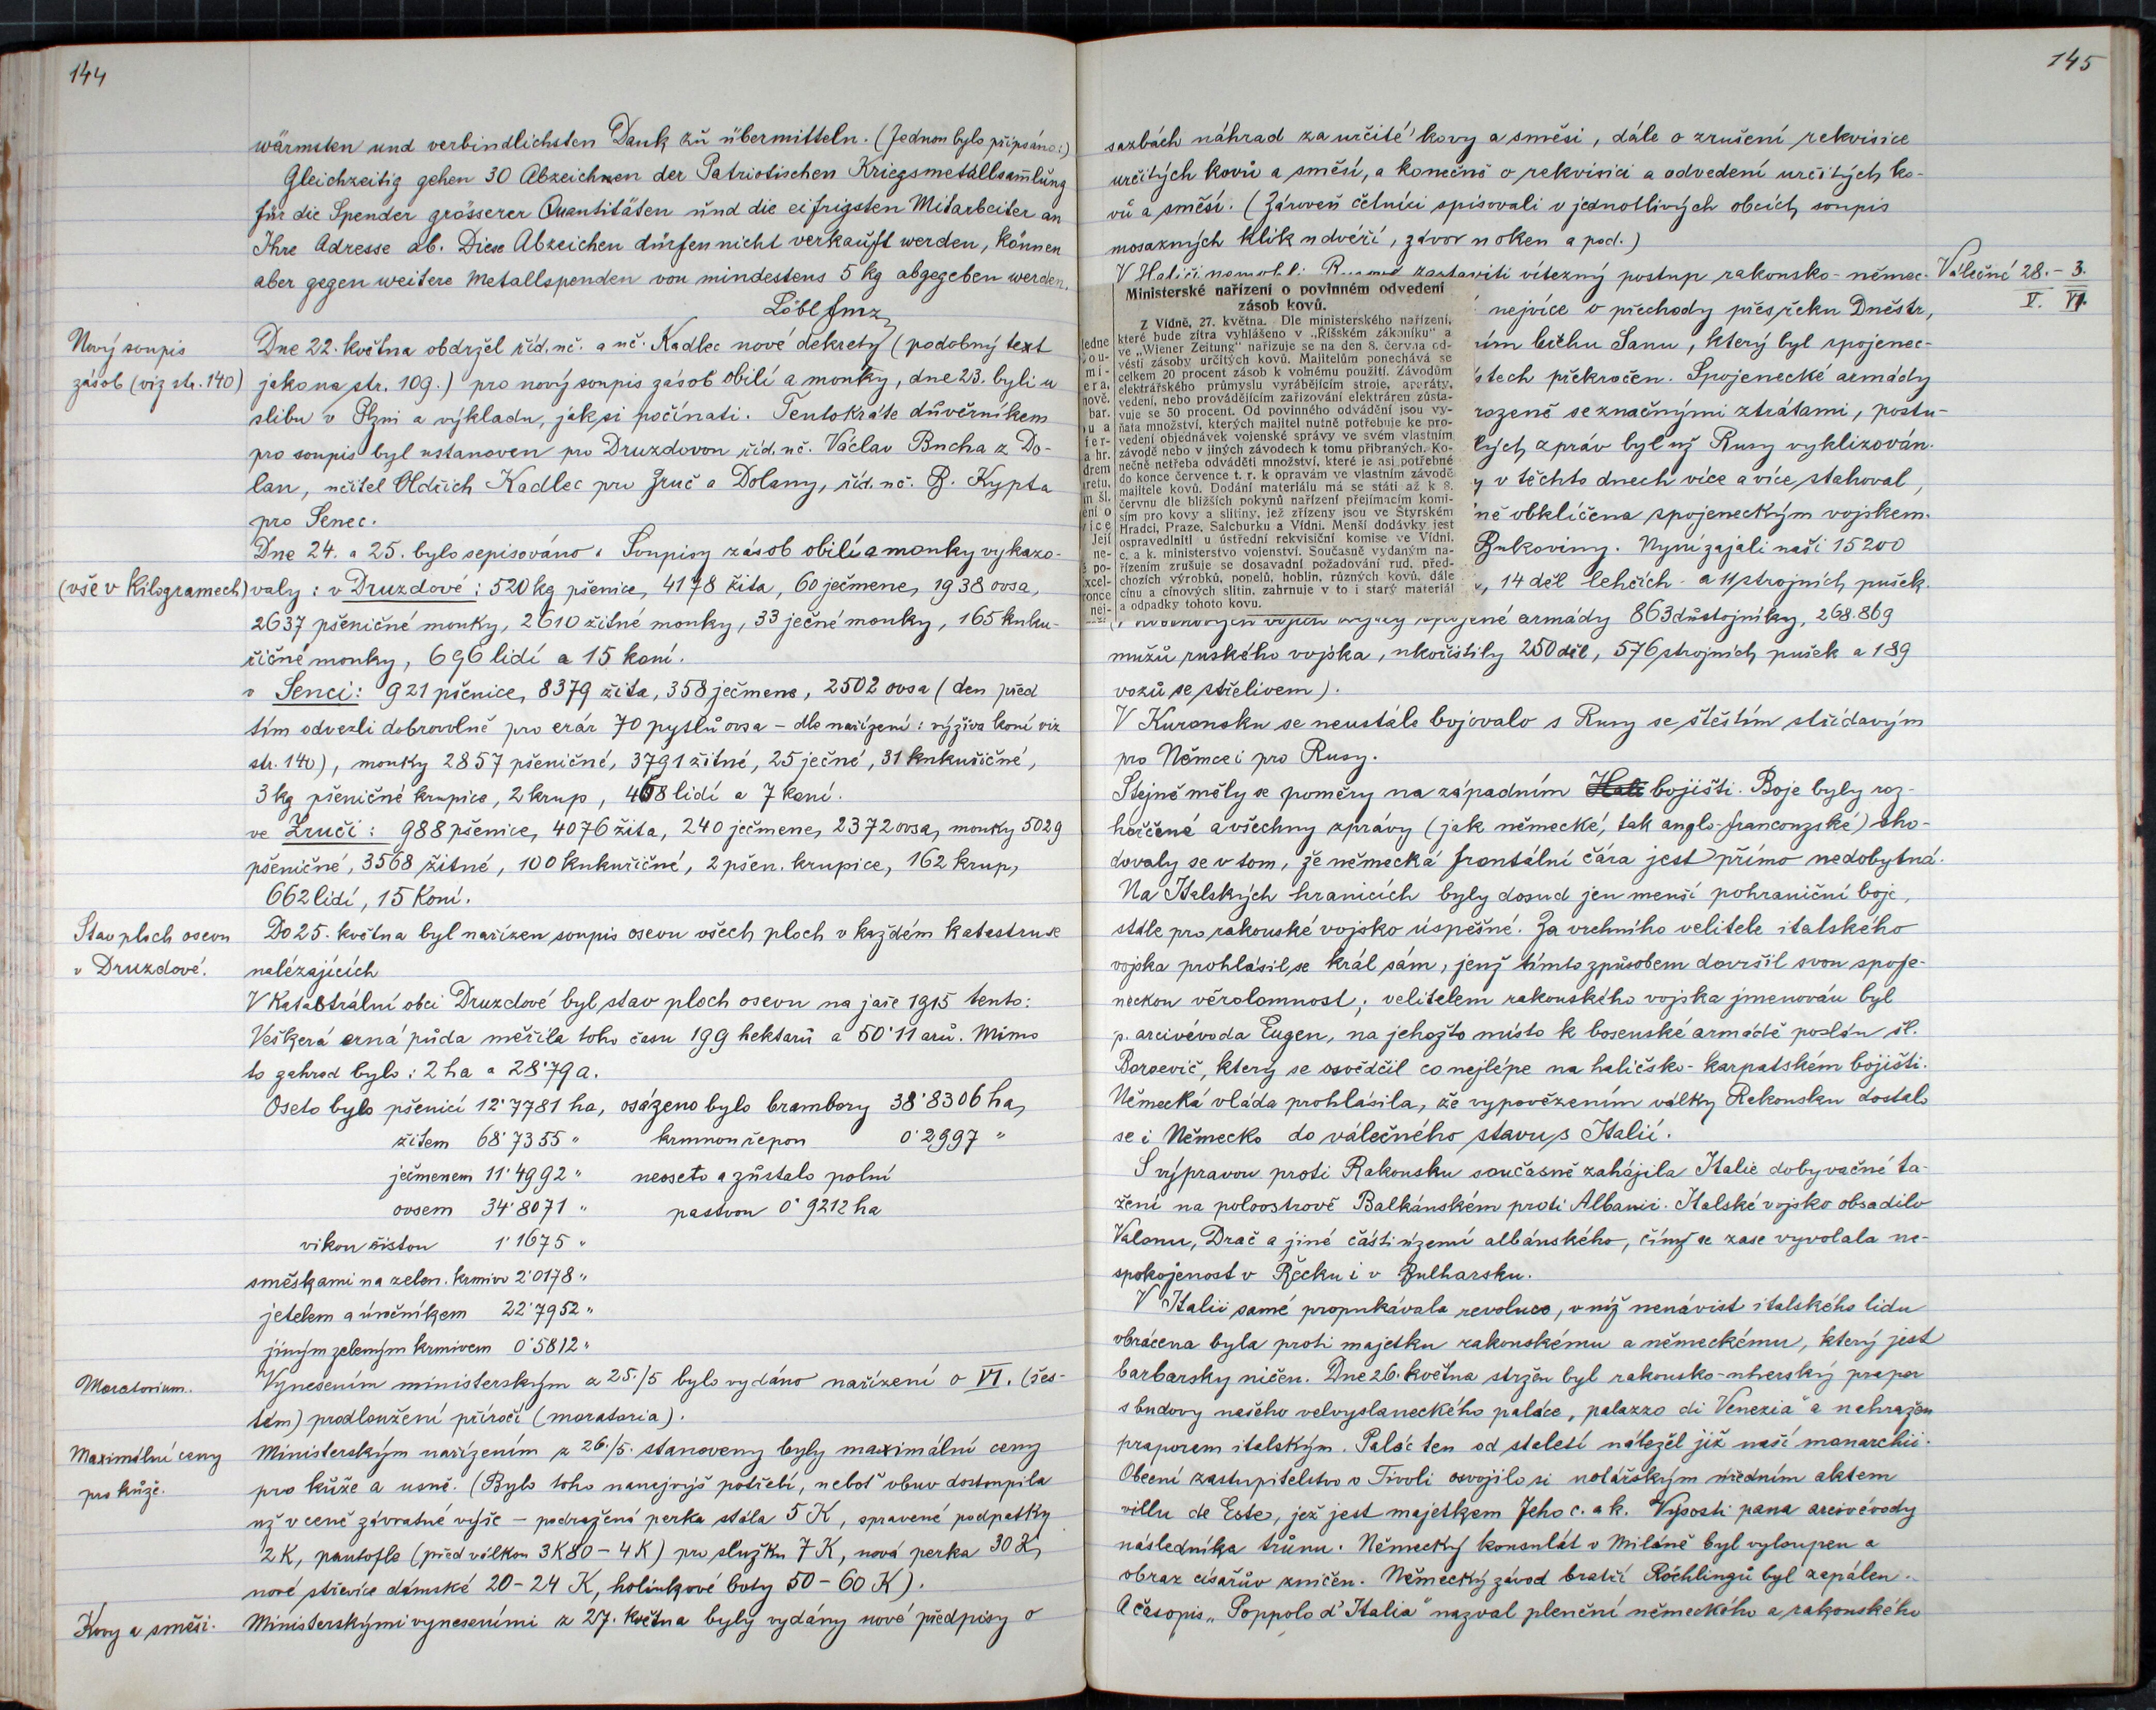 144
wärmsten und verbindlichsten Dank zu übermitteln. (Jednou bylo připsáno:)
Gleichzeitig gehen 30 Abzeichnen der Patriotischen Kriegsmetallsam̄lung
für die Spender grösserer Quantitäten und die eifrigsten Mitarbeiter an
Ihre Adresse ab. Diese Abzeichen dürfen nicht verkauft werden, können
aber gegen weitere Metallspenden von mindestens 5 kg abgegeben werden.
Löbl
Nový soupis
zásob (viz str. 140)
Dne 22. května obdržel říd. uč. a uč. Kadlec nové dekrety (podobný text
jako na str. 109.) pro nový soupis zásob obilí a mouky, dne 23. byli u
slibu v Plzni a výkladu, jak si počínati. Tentokráte důvěrníkem
pro soupis byl ustanoven pro Druzdovou říd. uč. Václav Bucha z Do-
lan, učitel Oldřich Kadlec pro Zruč a Dolany, říd. uč. B. Kypta
pro Senec.
Dne 24. a 25. bylo sepisováno. Soupisy zásob obilí a mouky vykazo-
(vše v kilogramech) valy: v Druzdové: 520 kg pšenice, 4178 žita, 60 ječmene, 1938 ovsa,
2637 pšeničné mouky, 2610 žitné mouky, 33 ječné mouky, 165 kuku-
řičné mouky, 696 lidí a 15 koní.
v Senci: 921 pšenice, 8379 žita, 358 ječmene, 2502 ovsa (den před
tím odvezli dobrovolně pro erár 70 pytlů ovsa – dle nařízení: výživa koní viz
str. 140), mouky 2857 pšeničné, 3791 žitné, 25 ječné, 31 kukuřičné,
3 kg pšeničné krupice, 2 krup, lidí a 7 koní.
ve Zruči: 988 pšenice, 4076 žita, 240 ječmene, 2372 ovsa, mouky 5029
pšeničné, 3568 žitné, 100 kukuřičné, 2 pšen. krupice, 162 krup,
662 lidí, 15 koní.
Stav ploch osevu
v Druzdové.
Do 25. května byl nařízen soupis osevu všech ploch v každém katastru se
nalézajících
V katastrální obci Druzdové byl stav ploch osevu na jaře 1915 tento:
Veškerá orná půda měřila toho času 199 hektarů a 50'11 arů. Mimo
to zahrad bylo: 2 ha a 28'79 a.
Oseto bylo pšenicí 12'7781 ha, osázeno bylo brambory 38'8306 ha,
žitem 68'7355 " krmnou řepou 0'2997 "
ječmenem 11'4992 " neoseto a zůstalo polní
ovsem 34'8071 " pastvou 0'9212 ha
vikou čistou 1'1675 "
směskami na zelen. krmivo 2'0178 "
jetelem a úročníkem 22'7952 "
jiným zeleným krmivem 0'5812 "
Moratorium.
Vynesením ministerským z 25./5 bylo vydáno nařízení o VI. (šes-
tém) prodloužení příročí (moratoria).
Maximální ceny
pro kůže.
Ministerským nařízením z 26./5. stanoveny byly maximální ceny
pro kůže a usně. (Bylo toho nanejvýš potřebí, neboť obuv dostoupila
už v ceně závratné výše – podražená perka stála 5 K, spravené podpatky
2 K, pantofle (před válkou 3 K 80 – 4 K) pro služku 7 K, nová perka 30 K,
nové střevíce dámské 20–24 K, holínkové boty 50–60 K).
Kovy a směsi.
Ministerskými vyneseními z 27. května byly vydány nové předpisy o
145
sazbách náhrad za určité kovy a směsi, dále o zrušení rekvisice
určitých kovů a směsí, a konečně o rekvisici a odvedení určitých ko-
vů a směsí. (Zároveň četníci spisovali v jednotlivých obcích soupis
mosazných klik u dveří, závor u oken a pod.)
V Haliči nemohli Rusové zastaviti vítězný postup rakousko-němec-
Válečné 28. – 3.
V. VI.
Ministerské nařízení o povinném odvedení
zásob kovů.
Z Vídně, 27. května. Dle ministerského nařízení,
které bude zítra vyhlášeno v „Říšském zákoníku“ a
ve „Wiener Zeitung“ nařizuje se na den 8. června od-
vésti zásoby určitých kovů. Majitelům ponechává se
celkem 20 procent zásob k volnému použití. Závodům
elektrářského průmyslu vyrábějícím stroje, aparáty,
vedení, nebo provádějícím zařizování elektráren zůsta-
vuje se 50 procent. Od povinného odvádění jsou vy-
ňata množství, kterých majitel nutně potřebuje ke pro-
vedení objednávek vojenské správy ve svém vlastním
závodě nebo v jiných závodech k tomu přibraných. Ko-
nečně netřeba odváděti množství, které je asi potřebné
do konce července t. r. k opravám ve vlastním závodě
majitele kovů. Dodání materiálu má se státi až k 8.
červnu dle bližších pokynů nařízení přejímacím komi-
sím pro kovy a slitiny, jež zřízeny jsou ve Štyrském
Hradci, Praze, Salcburku a Vídni. Menší dodávky jest
ospravedlniti u ústřední rekvisiční komise ve Vídni.
c. a k. ministerstvo vojenství. Současně vydaným na-
řízením zrušuje se dosavadní požadování rud, před-
chozích výrobků, popelů, hoblin, různých kovů, dále
cínu a cínových slitin, zahrnuje v to i starý materiál
a odpadky tohoto kovu.
nejvíce o přechody přes řeku Dněstr,
ím břehu Sanu, který byl spojenec-
stech překročen. Spojenecké armády
rozeně se značnými ztrátami, postu-
lých zpráv byl už Rusy vyklizován.
y v těchto dnech více a více stahoval,
ně obklíčena spojeneckým vojskem.
Bukoviny. Nyní zajali naši 15200
, 14 děl lehčích a 11 strojních pušek.
armády 863 důstojníky, 268.869
mužů ruského vojska, ukořistily 250 děl, 576 strojních pušek a 189
vozů se střelivem).
V Kuronsku se neustále bojovalo s Rusy se štěstím střídavým
pro Němce i pro Rusy.
Stejně měly se poměry na západním bojišti. Boje byly roz-
hořčené a všechny zprávy (jak německé, tak anglo-francouzské) sho-
dovaly se v tom, že německá frontální čára jest přímo nedobytná.
Na Italských hranicích byly dosud jen menší pohraniční boje,
stále pro rakouské vojsko úspěšné. Za vrchního velitele italského
vojska prohlásil se král sám, jenž tímto způsobem dovršil svou spoje-
neckou věrolomnost; velitelem rakouského vojska jmenován byl
p. arcivévoda Eugen, na jehožto místo k bosenské armádě poslán šl.
Boroevič, který se osvědčil co nejlépe na haličsko-karpatském bojišti.
Německá vláda prohlásila, že vypovězením války Rakousku dostalo
se i Německo do válečného stavu s Italií.
S výpravou proti Rakousku současně zahájila Italie dobyvačné ta-
žení na poloostrově Balkánském proti Albanii. Italské vojsko obsadilo
Valonu, Drač a jiné části území albánského, čímž se zase vyvolala ne-
spokojenost v Řecku i v Bulharsku.
V Italii samé propukávala revoluce, v níž nenávist italského lidu
obrácena byla proti majetku rakouskému a německému, který jest
barbarsky ničen. Dne 26. května stržen byl rakousko-uherský prapor
s budovy našeho velvyslaneckého paláce „palazzo di Venezia“ a nahražen
praporem italským. Palác ten od staletí náležel již naší monarchii.
Obecní zastupitelstvo v Tivoli osvojilo si notářským úředním aktem
villu de Este, jež jest majetkem Jeho c. a k. Výsosti pana arcivévody
následníka trůnu. Německý konsulát v Miláně byl vyloupen a
obraz císařův zničen. Německý závod bratří Röchlingů byl zapálen.
A časopis „Poppolo d'Italia“ nazval plenění německého a rakouského